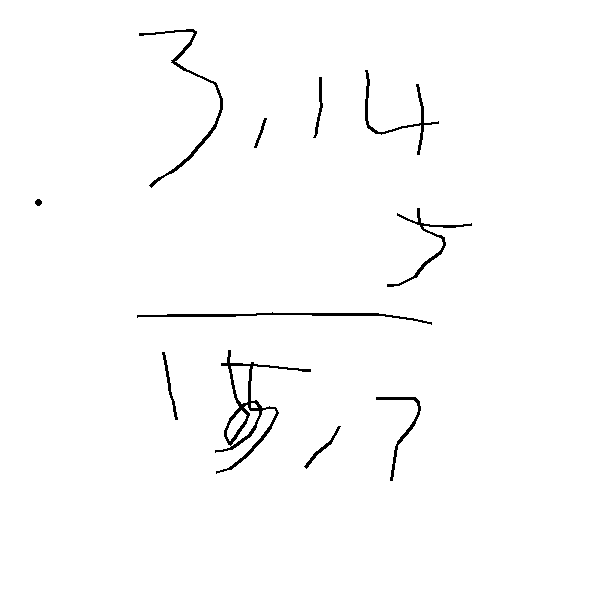 3,14
· 5
15,7